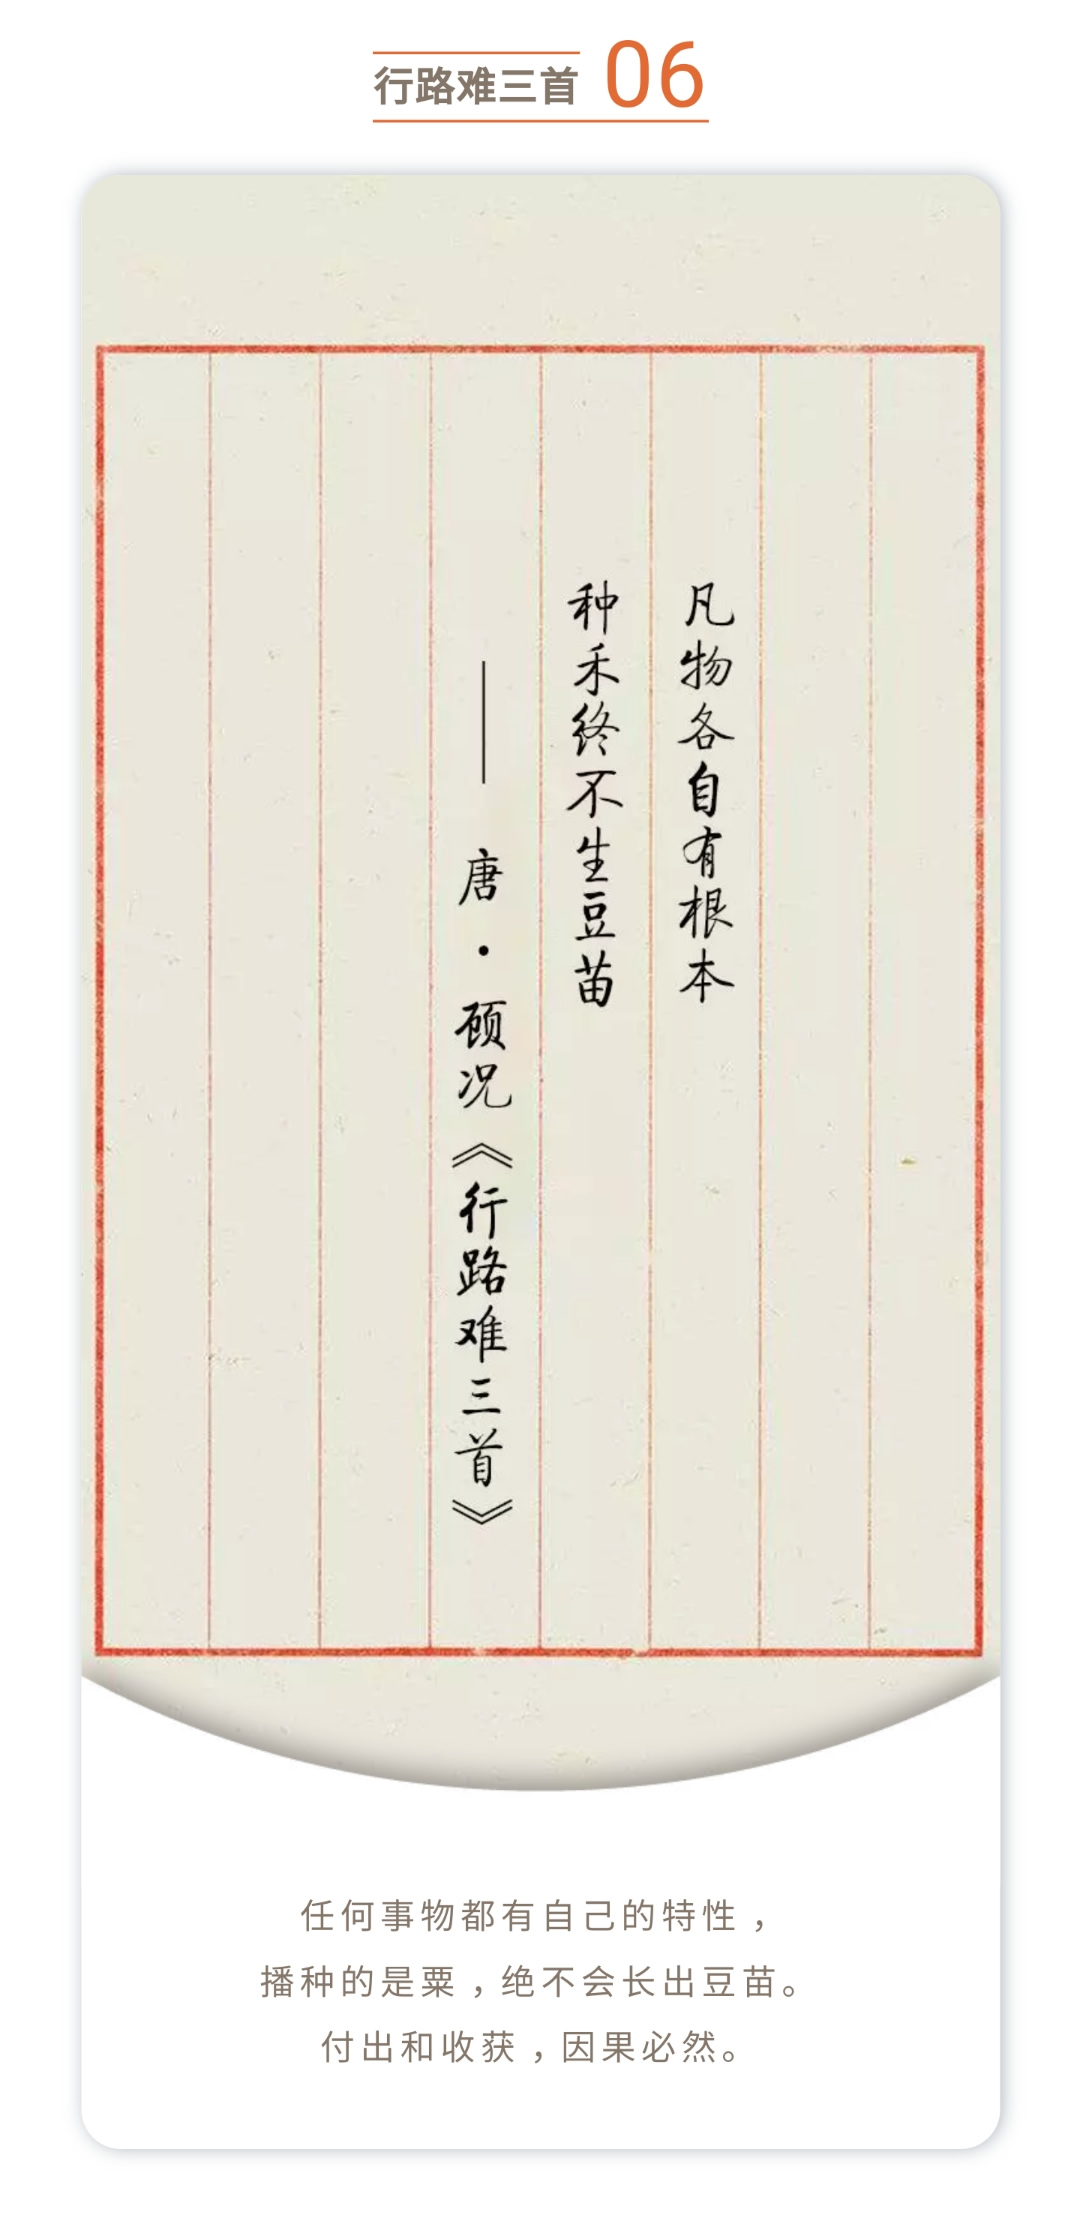 行路难三首 06
凡物各自有根本
种禾终不生豆苗
—— 唐·顾况《行路难三首》
任何事物都有自己的特性，
播种的是粟，绝不会长出豆苗。
付出和收获，因果必然。